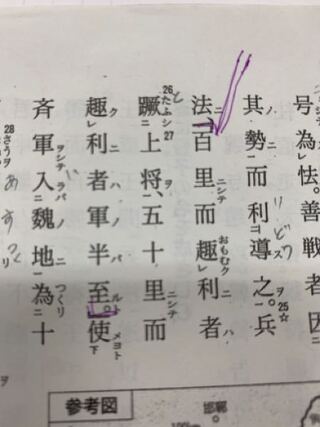 号為怯。善戦者因
其勢而利導之。兵
法、百里而趣利者
蹶上将、五十里而
趣利者軍半至。使
斉軍入魏地為十
参考図
邯鄲